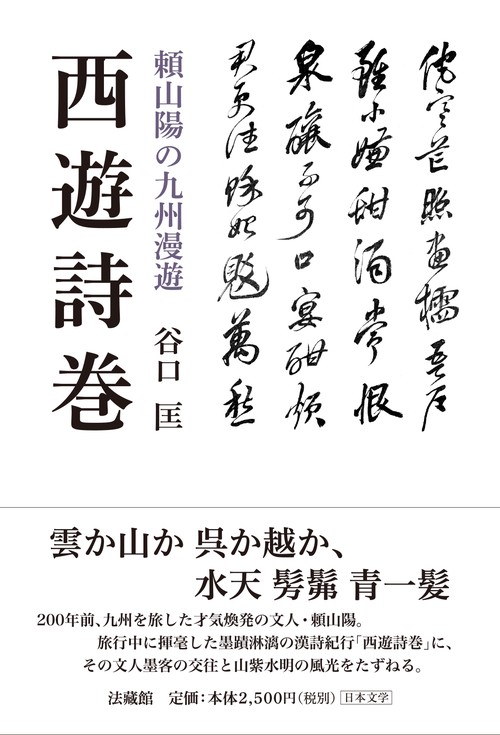 芒照画檣吾
嫌甜酒常恨
泉釀不可口宴酣
萬愁
頼山陽の九州漫遊
谷口 匡
西遊詩巻
雲か山か 呉か越か、
水天 髣髴 青一髪
200年前、九州を旅した才気煥発の文人・頼山陽。
旅行中に揮毫した墨蹟淋漓の漢詩紀行「西遊詩巻」に、
その文人墨客の交往と山紫水明の風光をたずねる。
法藏館 定価：本体2,500円（税別） 日本文学